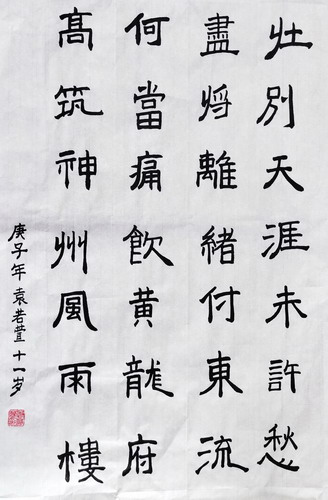 壯別天涯未許愁
盡將離緒付東流
何當痛飲黄龍府
高筑神州風雨樓
庚子年袁若萱十一岁